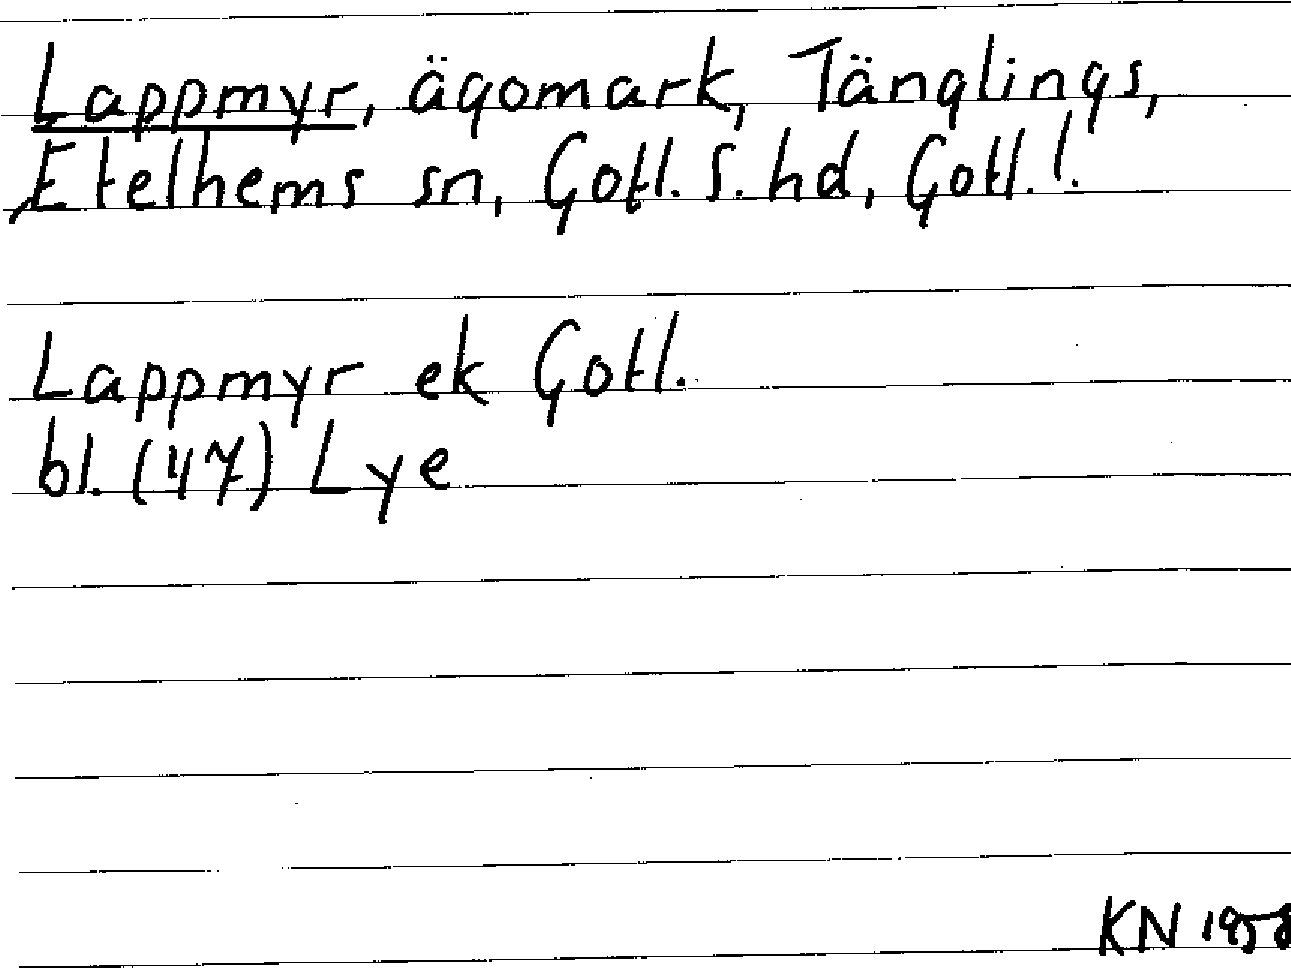 Lappmyr, ägomark, Tänglings,
Etelhems sn, Gotl. S. hd, Gotl. l.
Lappmyr ek Gotl.
bl. (47) Lye
KN